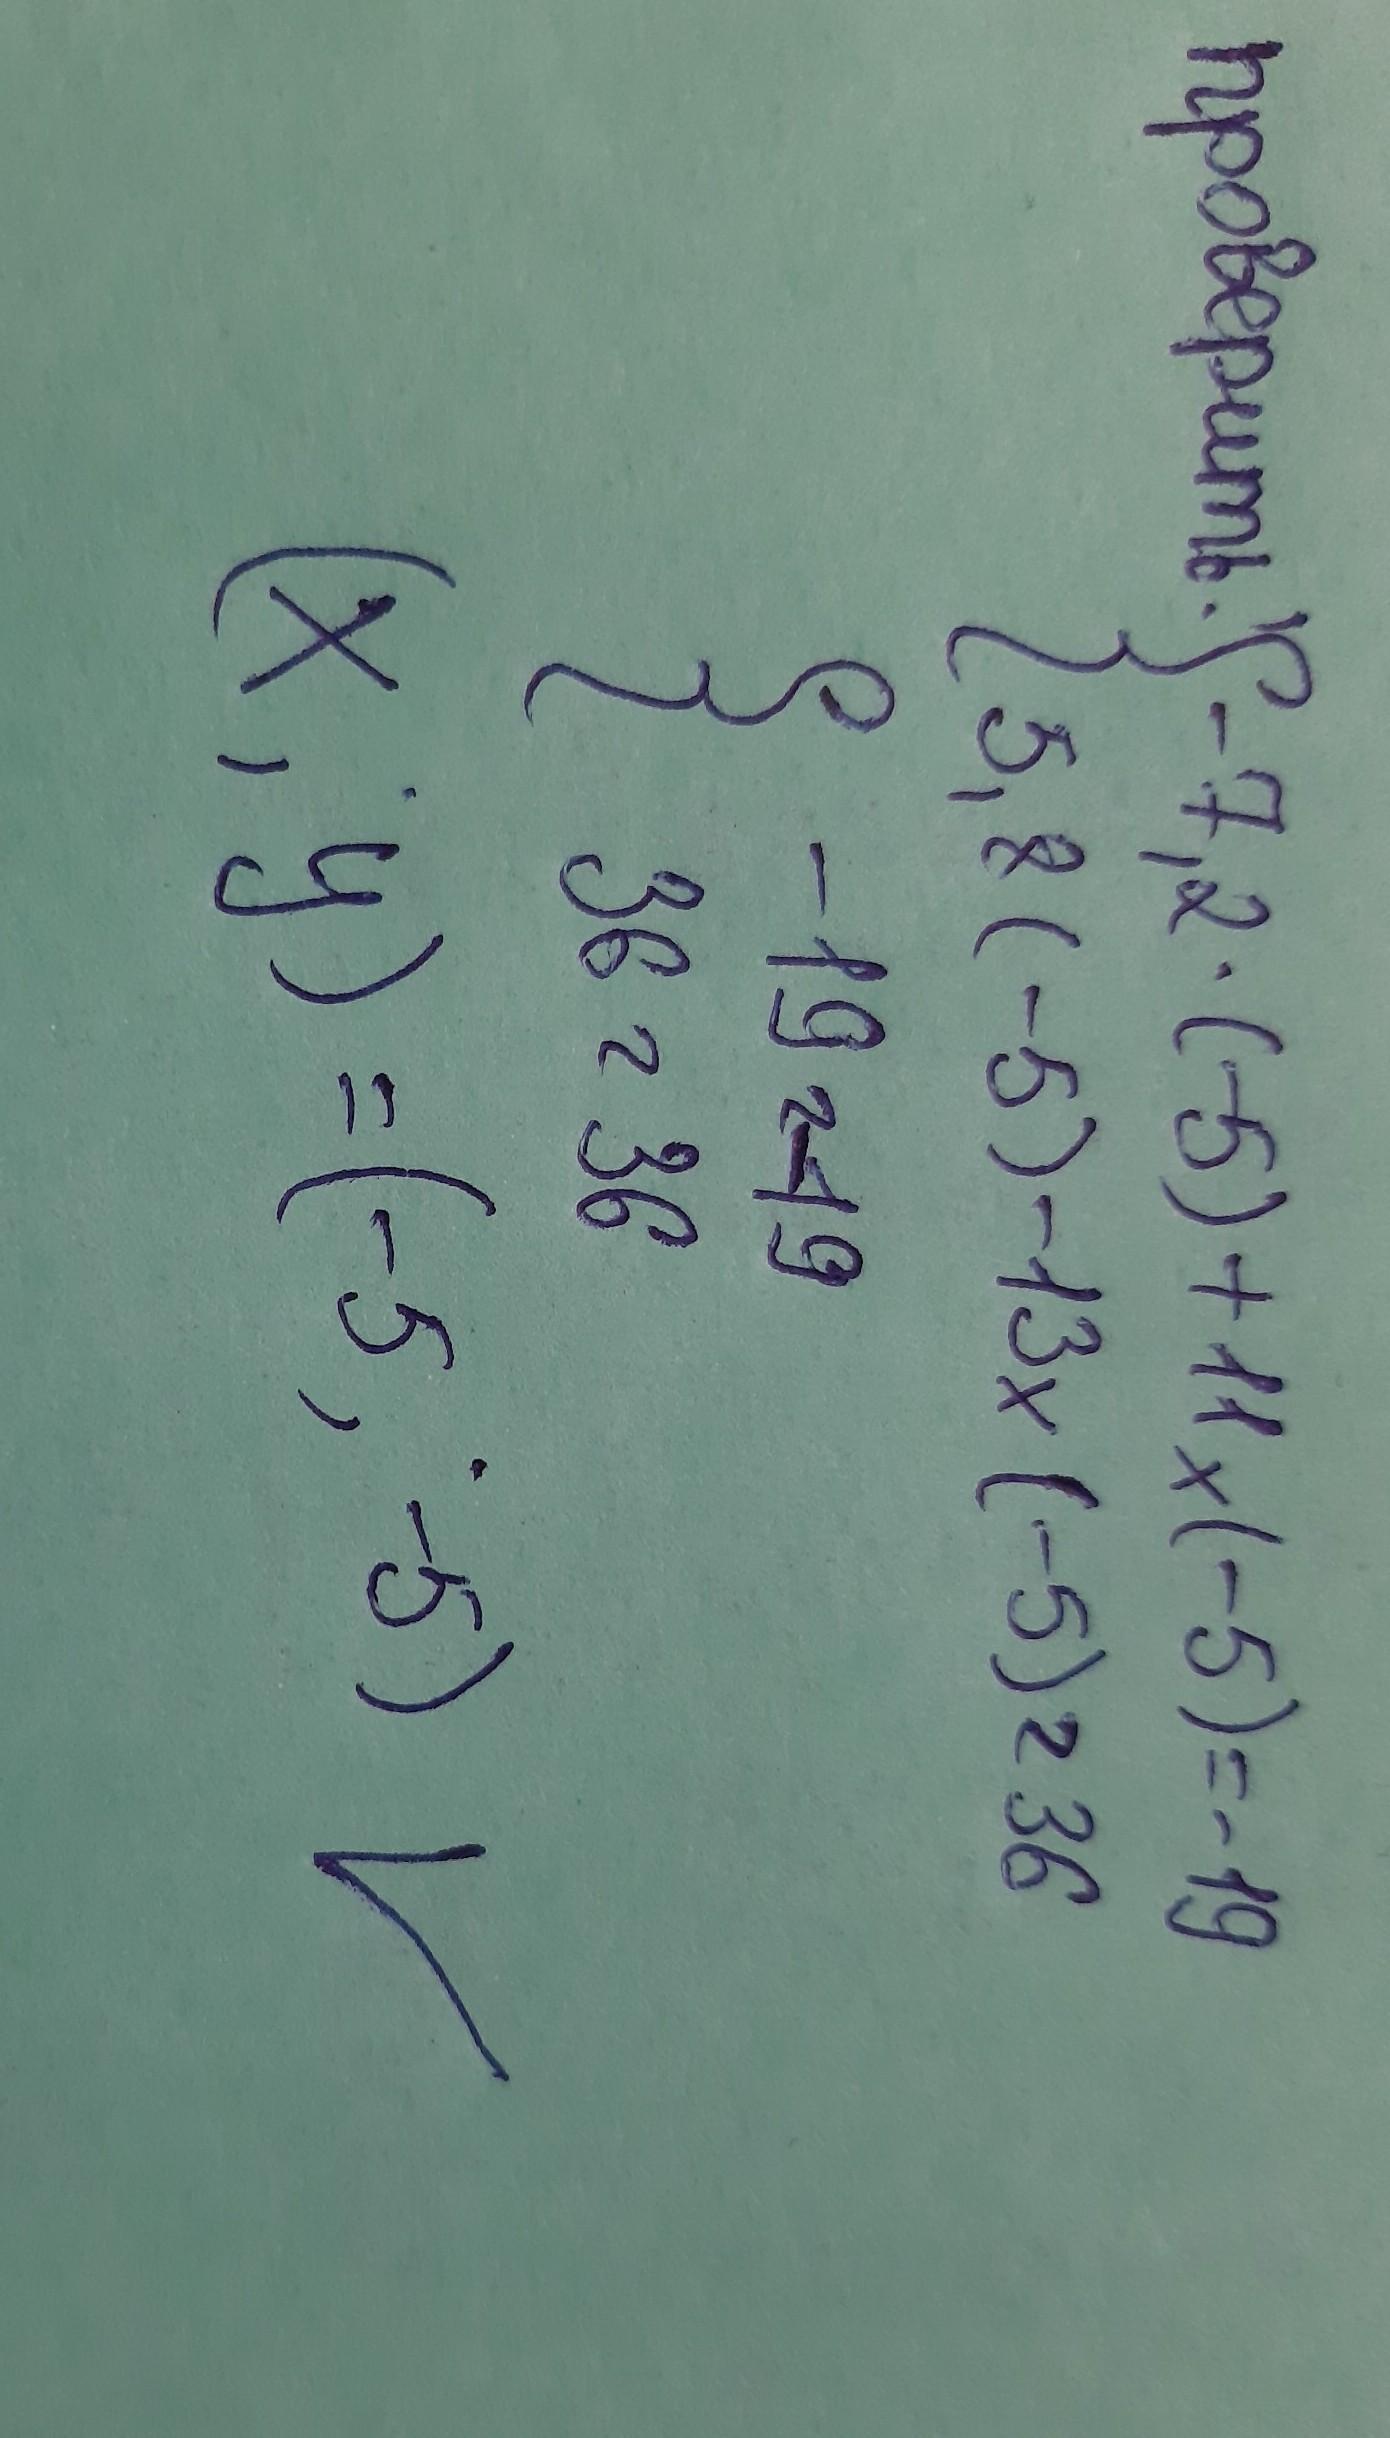 проверить. { -7,2 · (-5) + 11 x (-5) = -19
{ 5,8 (-5) - 13 x (-5) = 36
{ -19 = -19
36 = 36
(x, y) = (-5, -5) ✓